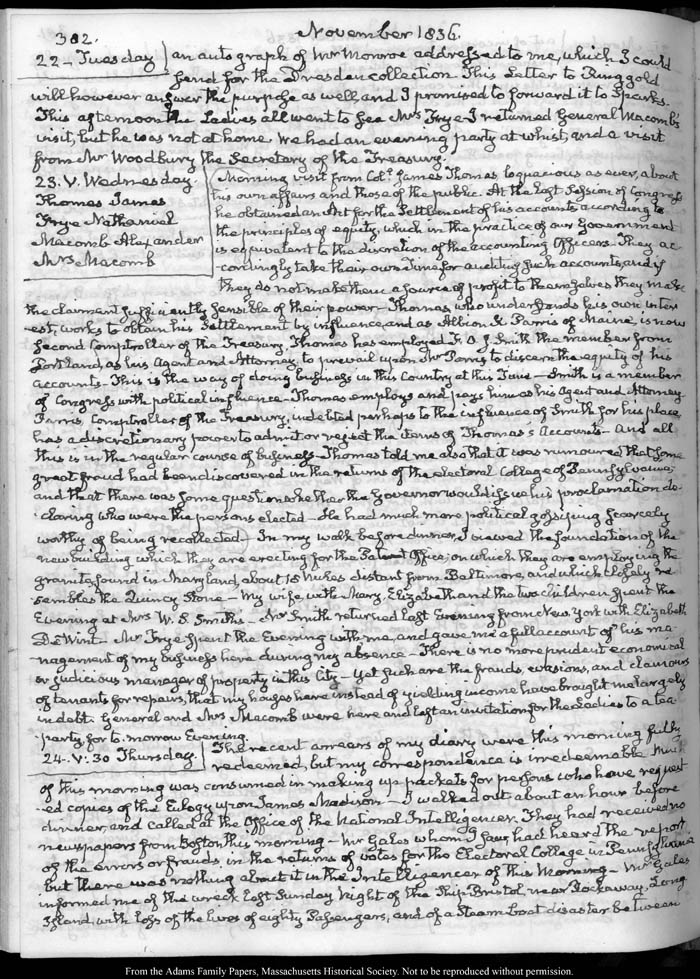 382.
November 1836.
22 - Tuesday | an autograph of Mr Monroe addressed to me, which I could
send for the Dresden collection. This Letter to Ringgold
will however answer the purpose as well, and I promised to forward it to Sparks.
This afternoon the Ladies all went to see Mrs Frye - I returned General Macomb's
visit, but he was not at home. We had an evening party at whist, and a visit
from Mr Woodbury the Secretary of the Treasury.
23. V. Wednesday.
Thomas James
Frye Nathaniel
Macomb Alexander
Mrs Macomb
Morning visit from Coll. James Thomas, loquacious as ever, about
his own affairs and those of the public. At the last Session of Congress
he obtained an Act for the Settlement of his accounts according to
the principles of equity, which in the practice of our Government
is equivalent to the discretion of the accounting Officers. They ac-
cordingly take their own time for auditing such accounts, and if
they do not make them a source of profit to themselves they make
the claimant sufficiently sensible of their power - Thomas, who understands his own inter-
est, works to obtain his Settlement by influence, and as Albion K Parris of Maine, is now
second Comptroller of the Treasury, Thomas has employed F. O. J. Smith the member from
Portland, as his Agent and Attorney, to prevail upon Mr Parris to discern the equity of his
accounts - This is the way of doing business in this Country at this Time - Smith is a member
of Congress with political influence - Thomas employs and pays him as his Agent and Attorney.
Parris, Comptroller of the Treasury, indebted perhaps to the influence of Smith for his place,
has a discretionary power to admit or reject the items of Thomas's Accounts - And all
this is in the regular course of business - Thomas told me also that it was rumoured that some
great fraud had been discovered in the returns of the electoral College of Pennsylvania;
and that there was some question whether the Governor would issue his proclamation de-
claring who were the persons elected - He had much more political gossiping scarcely
worthy of being recollected - In my walk before dinner, I viewed the foundation of the
new building which they are erecting for the Patent Office; on which they are employing the
granite, found in Maryland, about 15 miles distant from Baltimore, and which closely re-
sembles the Quincy Stone - My wife with Mary, Elizabeth and the two children spent the
Evening at Mrs W. S. Smith's - Mr Smith returned last Evening from New York with Elizabeth
De Wint - Mr Frye spent the Evening with me, and gave me a full account of his ma-
nagement of my business here during my absence - There is no more prudent economical
or judicious manager of property in this City - Yet such are the frauds, evasions, and clamours
of tenants for repairs, that my houses here instead of yielding income have brought me largely
in debt. General and Mrs Macomb were here and left an invitation for the Ladies to a tea
party for to-morrow Evening.
24. V. 30 Thursday. | The recent arrears of my diary were this morning fully
redeemed, but my correspondence is irredeemable. Much
of this morning was consumed in making up packets for persons who have request-
ed copies of the Eulogy upon James Madison - I walked out about an hour before
dinner, and called at the Office of the National Intelligencer. They had received no
newspapers from Boston this morning - Mr Gales whom I saw, had heard the report
of the errors or frauds, in the returns of votes for the Electoral College in Pennsylvania
but there was nothing about it in the Intelligencer of this Morning - Mr Gales
informed me of the wreck last Sunday Night of the Ship Bristol, near Rockaway, Long
Island, with loss of the lives of eighty Passengers; and of a Steam boat disaster between
From the Adams Family Papers, Massachusetts Historical Society. Not to be reproduced without permission.